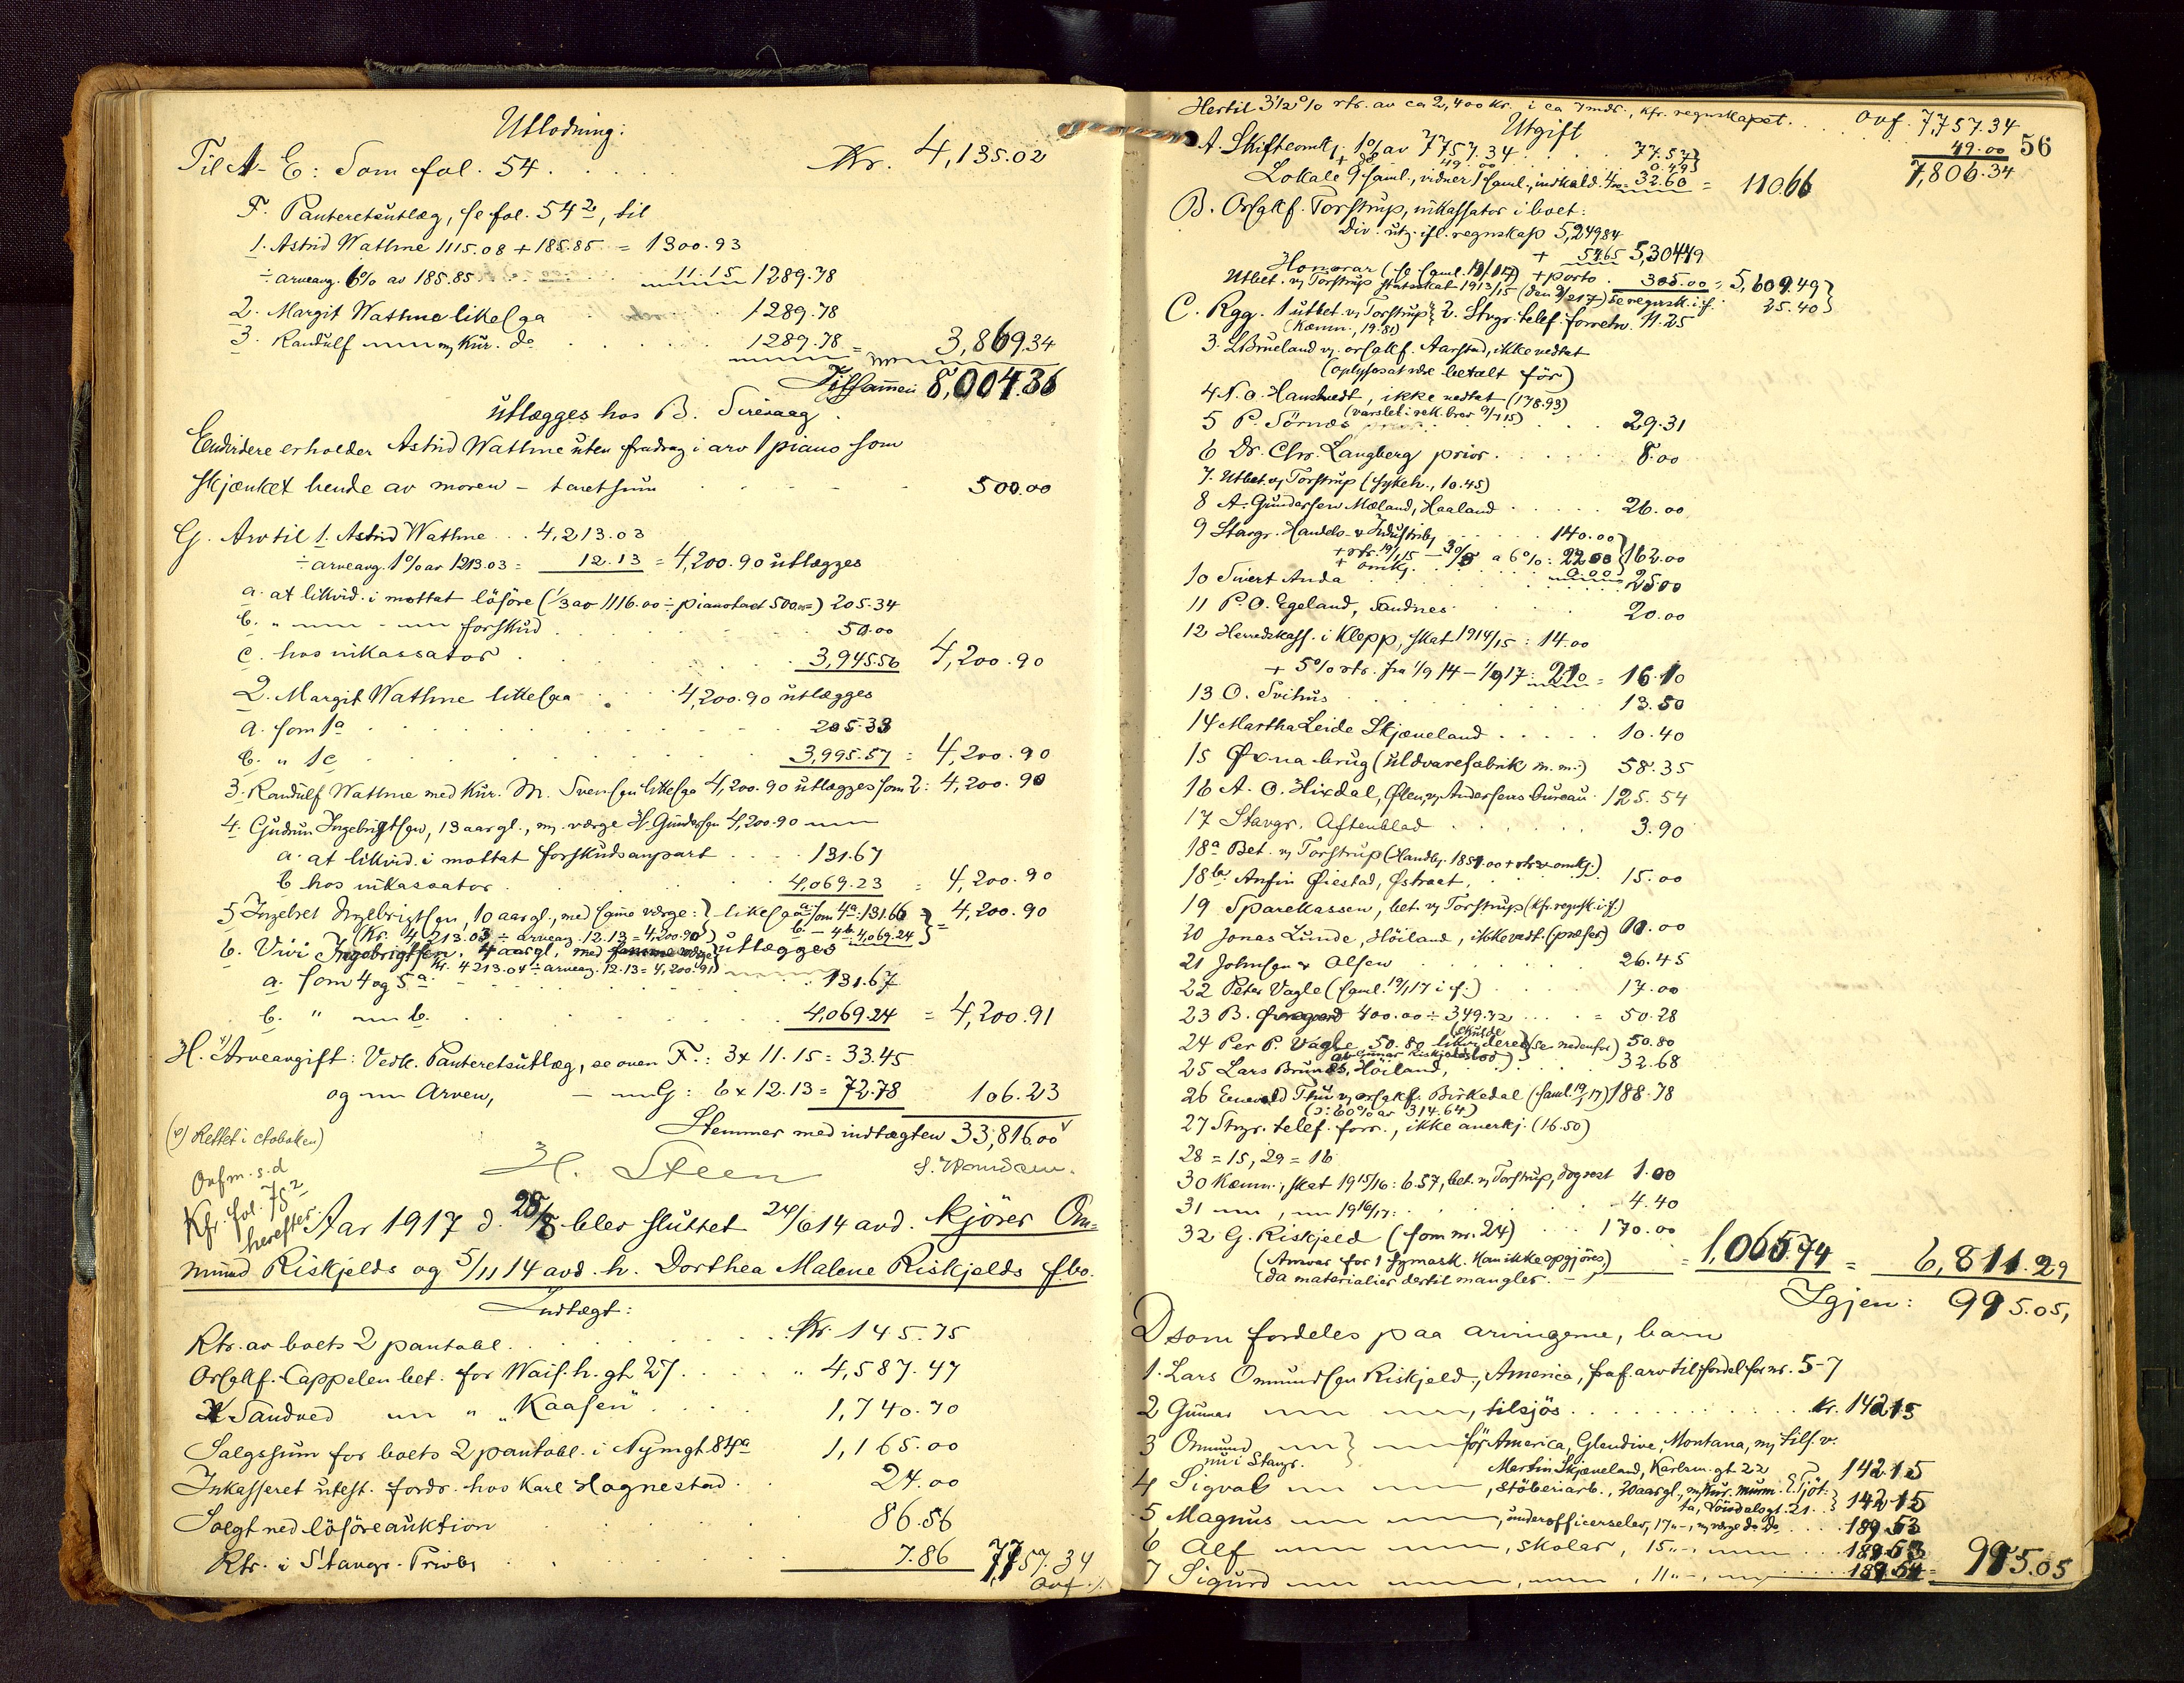 Utlodning:
Til A-E: Som fol. 54 . . . . . Kr. 4,135.02
F. Panteretsutlæg, se fol. 54², til
1. Astrid Wathne 1115.08 + 185.85 = 1300.93
÷ arveavg. 6% av 185.85 11.15 1289.78
2. Margit Wathne likesaa 1289.78
3. Randulf —„— m/ Kur. do 1289.78 = 3,869.34
Tilsammen 8,004.36
utlægges hos B. Sirevaag.
Endvidere erholder Astrid Wathne uten fradrag i arv 1 piano som
skjænket hende av moren – taxtsum 500.00
G. Arv til 1. Astrid Wathne . . . 4,213.03
÷ arveavg. 1% av 1213.03 = 12.13 = 4,200.90 utlægges
a. at likvid. i mottat lösöre (1/3 av 1116.00 ÷ pianotaxt 500.00=) 205.34
b. „ —„— - —„— forskud . . . 50.00
c. hos inkassator . . . 3,945.56 4,200.90
2. Margit Wathne likesaa . . . 4,200.90 utlægges
a. som 1a . . . 205.33
b. „ 1c . . . 3,995.57 = 4,200.90
3. Randulf Wathne med Kur. M. Svensen likesaa 4,200.90 utlægges som 2: 4,200.90
4. Gudrun Ingebrigtsen, 13 aar gl., m. værge H. Gundersen 4,200.90 —„—
a. at likvid. i mottat forskudsanpart . . . 131.67
b. hos inkassator . . . 4,069.23 = 4,200.90
5 Ingebret Ingebrigtsen, 10 aar gl., med samme værge: likesaa a. som 4a: 131.66 = 4,200.90
(Kr. 4,213.03 ÷ arveavg. 12.13 = 4,200.90) b. — 4b 4,069.24
6. Vivi Ingebrigtsen, 4 aar gl., med samme værge utlægges
Kr. 4213.04 ÷ arveavg. 12.13 = 4,200.91
a. som 4 og 5a . . . 131.67
b. „ —„— b. . . . 4,069.24 = 4,200.91
H. v) Arveavgift: Vedk. Panteretsutlæg, se oven F.: 3 x 11.15 = 33.45
og —„— Arven, — —„— G: 6 x 12.13 = 72.78 106.23
Stemmer med indtægten 33,816.00
(v) Rettet i
H. Steen
Ovf. m. s. d
Kfr. fol. 75²
herefter.
Aar 1917 d. 28/8 blev sluttet 24/6 14 avd. kjörer Om-
mund Riskjelds og 5/11 14 avd. h. Dorthea Malene Riskjelds fbo.
Indtægt:
Rtr. av boets 2 pantobl. . . . Kr. 145.75
Orsakf. Cappelen bet. for Wais. h. gt 27 . . . „ 4,587.47
Sandved —„— „ „Kaasen" . . . 1,740.70
Salgssum for boets 2 pantobl. i Nymgt. 84a 1,165.00
Inkasseret utest. fordr. hos Karl Hognestad . . 24.00
Solgt ved lösöreauktion . . . 86.56
Rtr. i Stavgr. Privb. . . . 7.86 7,757.34
Ovf. ./.
Hertil 3 1/2 % rtr. av ca 2,400 Kr. i ca 7 mdr., kfr. regnskapet . . . ovf. 7,757.34
49.00 56
7,806.34
Utgift
A. Skifteomk.: 1% av 7757.34 . . . 77.57
+ do 49.00 . . . 0.49
Lokale 9 saml., vidner 1 saml., indkald. 4.00 = 32.60 = 110.66
B. Orsakf. Torstrup, inkassator i boet:
Div. utg. ifl. regnskap 5,249.84
+ 54.65 5,304.49
Honorar (se saml. 19/1 17) + porto . 305.00 = 5,609.49
Utbet. v/ Torstrup statsskat 1913/15 (den 3/2 17) se regnsk. i f. 25.40
C. Rgg. 1 utbet. v/ Torstrup 2. Stvgr. telef. forretn. 11.25
(Kæmn., 19.81)
3. L. Brueland v/ orsakf. Aarstad, ikke vedtat
(oplyses at være betalt för)
4. N. O. Hanstvedt, ikke vedtat (178.93)
(varslet i rek. brev 9/7 15)
5 P. Törnes . . . 29.31
6 Dr. Chr. Langberg prior . . . 8.00
7. Utbet. v/ Torstrup (sykeh., 10.45)
8 A. Gundersen Mæland, Haaland . . . 26.00
9 Stavgr. Handels- & Industrib. . . . 140.00
+ rtr. a 6%: 22.00 162.00
+ omk.
10 Sivert Anda . . . 25.00
11 P. O. Egeland, Sandnes . . . 20.00
12 Herredskass. i Klepp, skat 1914/15: 14.00
+ 5% rtr. fra 1/9 14 – 1/9 17: 2.10 = 16.10
13 O. Svihus . . . 13.50
14 Martha Leide Skjæveland . . . 10.40
15 Øxna brug (uldvarefabrik m. m.) 58.35
16 A. O. Hixdal, Ølen, v/ Andersens bureau 125.54
17 Stavgr. Aftenblad . . . 3.90
18a Bet. v/ Torstrup (Handb. 1851.00 + rtr & omk.)
18b Anfin Øiestad, Østraat, . . . 15.00
19 Sparekassen, bet. v/ Torstrup (kfr. regnsk. i f.)
20 Jonas Lunde, Höiland, ikke vedt. (præses) 10.00
21 Johnsen & Olsen . . . 26.45
22 Peter Vagle (saml. 19/1 17 i f.) . . . 17.00
23 B. 400.00 ÷ 349.72 . . . = 50.28
24 Per P. Vagle, 50.80 likvideres (se nedenfor) 50.80
25 Lars Brunes, Höiland, . . . 32.68
26 Enevald Thu v/ orsakf. Birkedal (saml. 19/1 17) 188.78
(ɔ: 60% av 314.64)
27 Stvgr. telef. forr., ikke anerkj. (16.50)
28 = 15, 29 = 16
30 Kæmn., skat 1915/16: 6.57, bet. v/ Torstrup, dog rest 1.00
31 —„—, —„— 1916/17: . . . 4.40
32 G. Riskjeld (som nr. 24) . . . 170.00
(Ansvar for 1 symask. Kan ikke opgjöres,)
(da materialier dertil mangler. —) = 1,065.74 = 6,811.29
Igjen: 995.05,
D som fordeles paa arvingerne, barn
1. Lars Ommundsen Riskjeld, America, fraf. arv til fordel for nr. 5-7
2 Gunnar —„— —„—, tilsjös . . . Kr. 142.15
3 Ommund —„— —„— för America, Glendive, Montana, m/ tils. v.
nu i Stavgr. Martin Skjæveland, Karlsm. gt. 22 142.15
4 Sigval —„— —„—, stöberiarb., 20 aar gl., m/ kur. murm. E. Tjöt-
ta, Lövdalsgt. 21. 142.15
5 Magnus —„— —„—, underofficerselev, 17 „ -, m/ værge do do . . 189.53
6 Alf —„— —„—, skolar, 15 „ -, —„— . . . 189.53
7 Sigurd —„— —„—, —„—, 11 „ -, —„— . . . 189.54 = 995.05